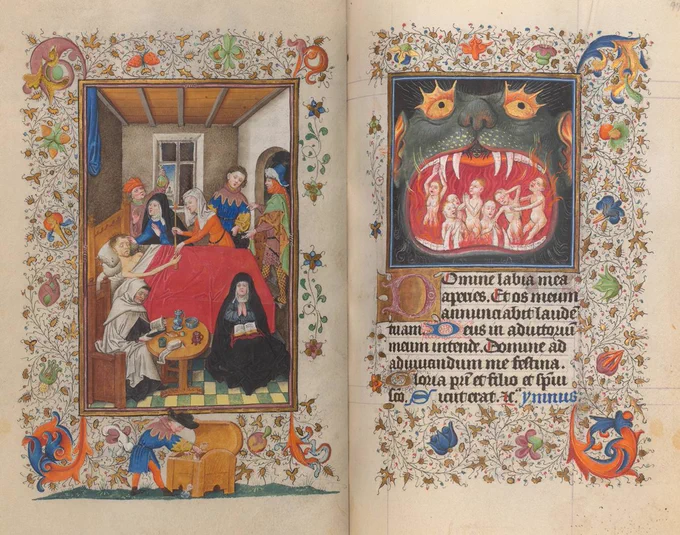 Domine labia mea
aperies. Et os meum
annunciabit laude
tuam. Deus in adiutoriu
meum intende. Domine ad
adiuuandum me festina.
Gloria pri et filio et spiui
sco. Sicut erat. &c. ymnus